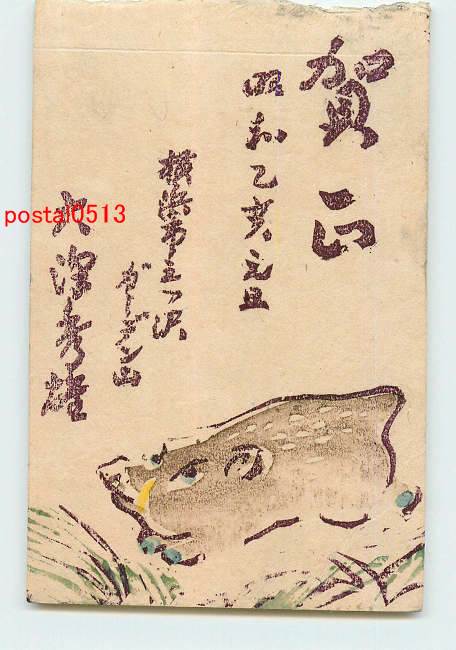 賀正
昭和乙亥元旦
横浜市三ツ沢
ガーデン山
大深秀雄
postal0513